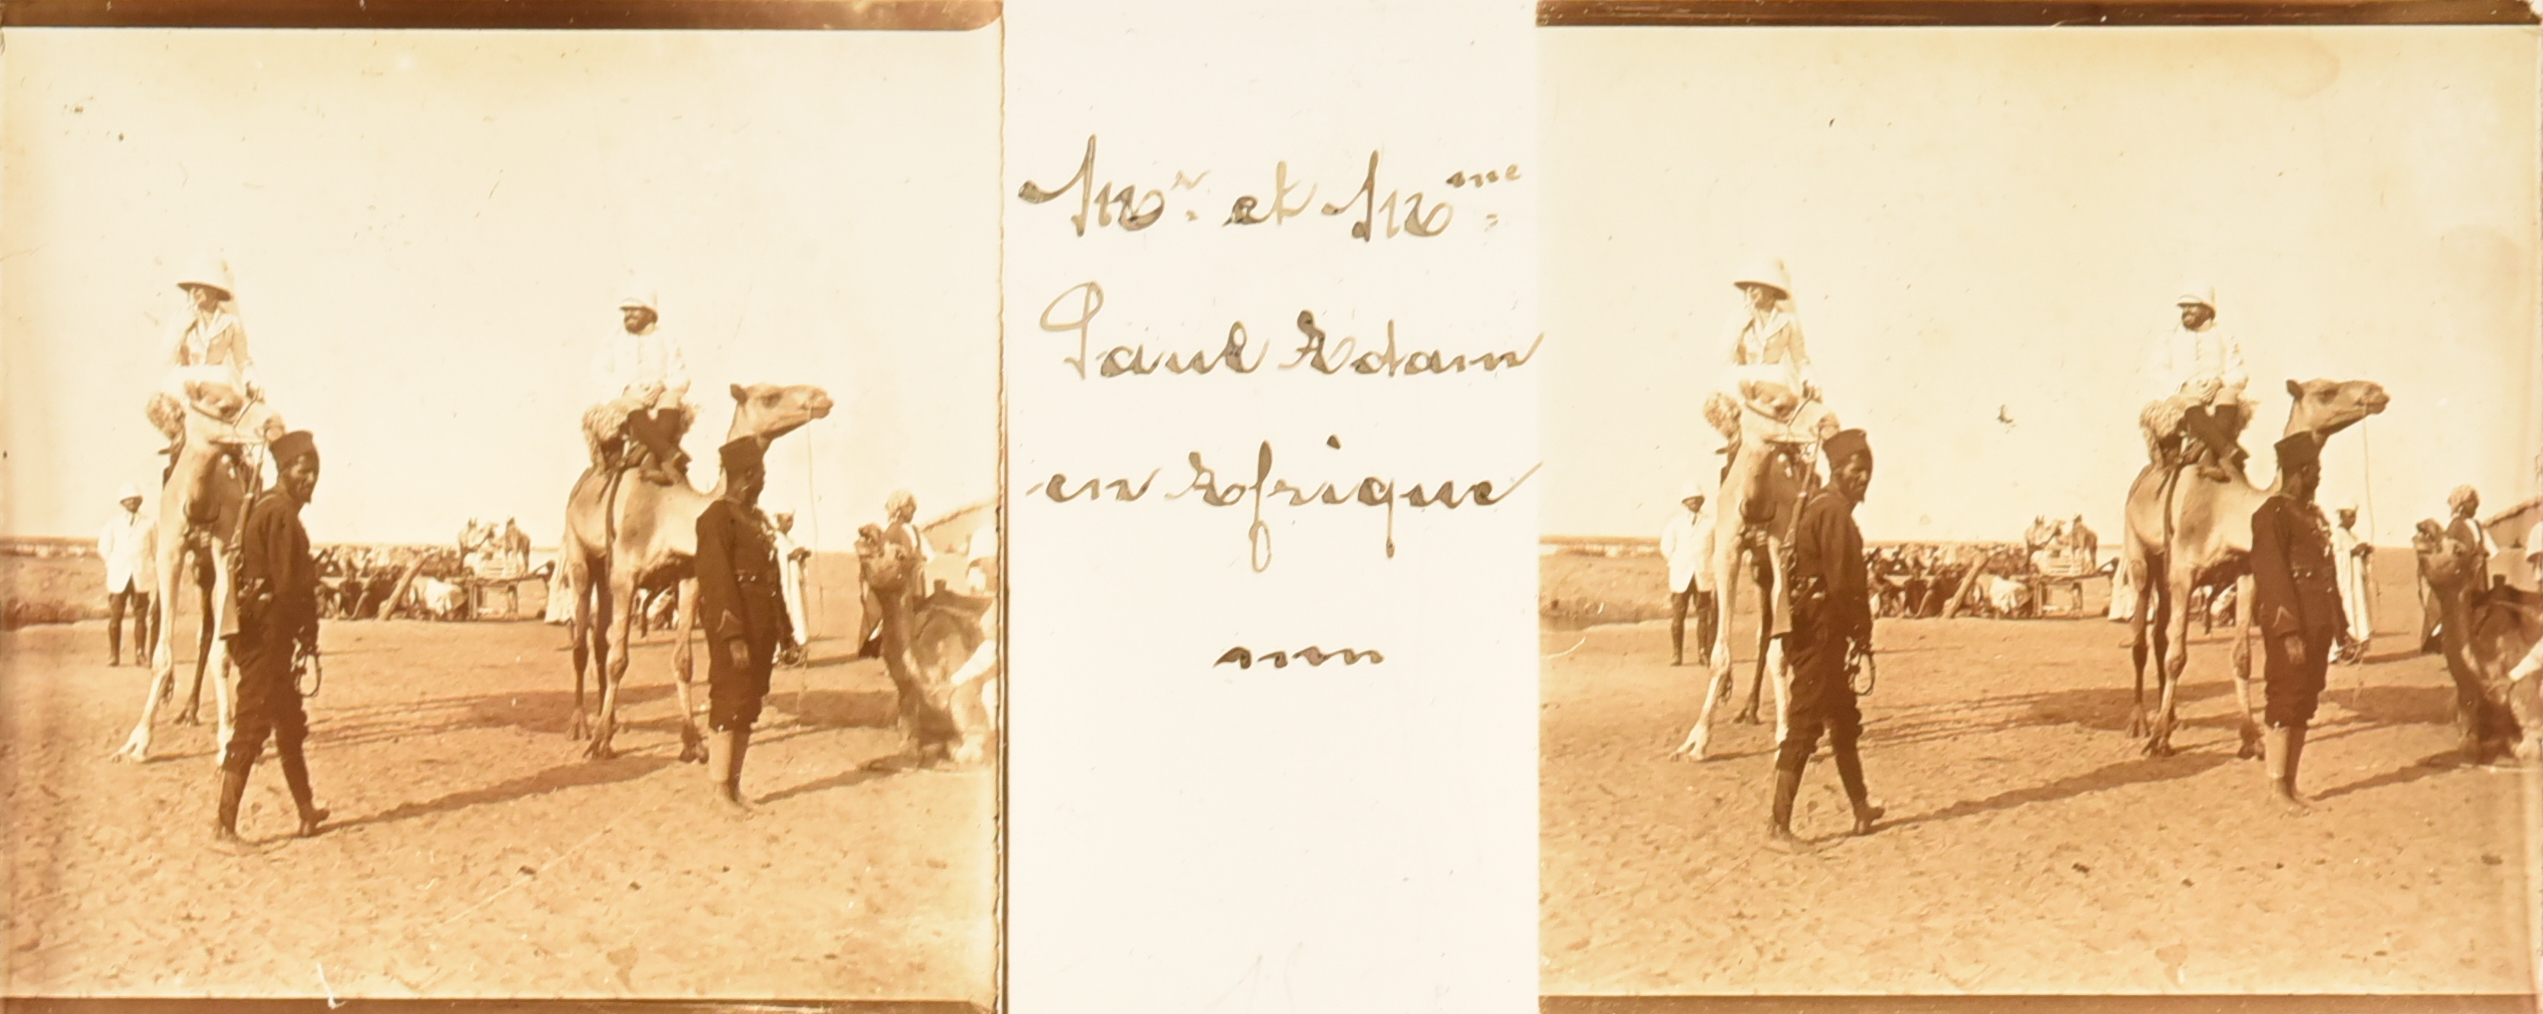 Mr. et Mme.
Paul Adam
en Afrique